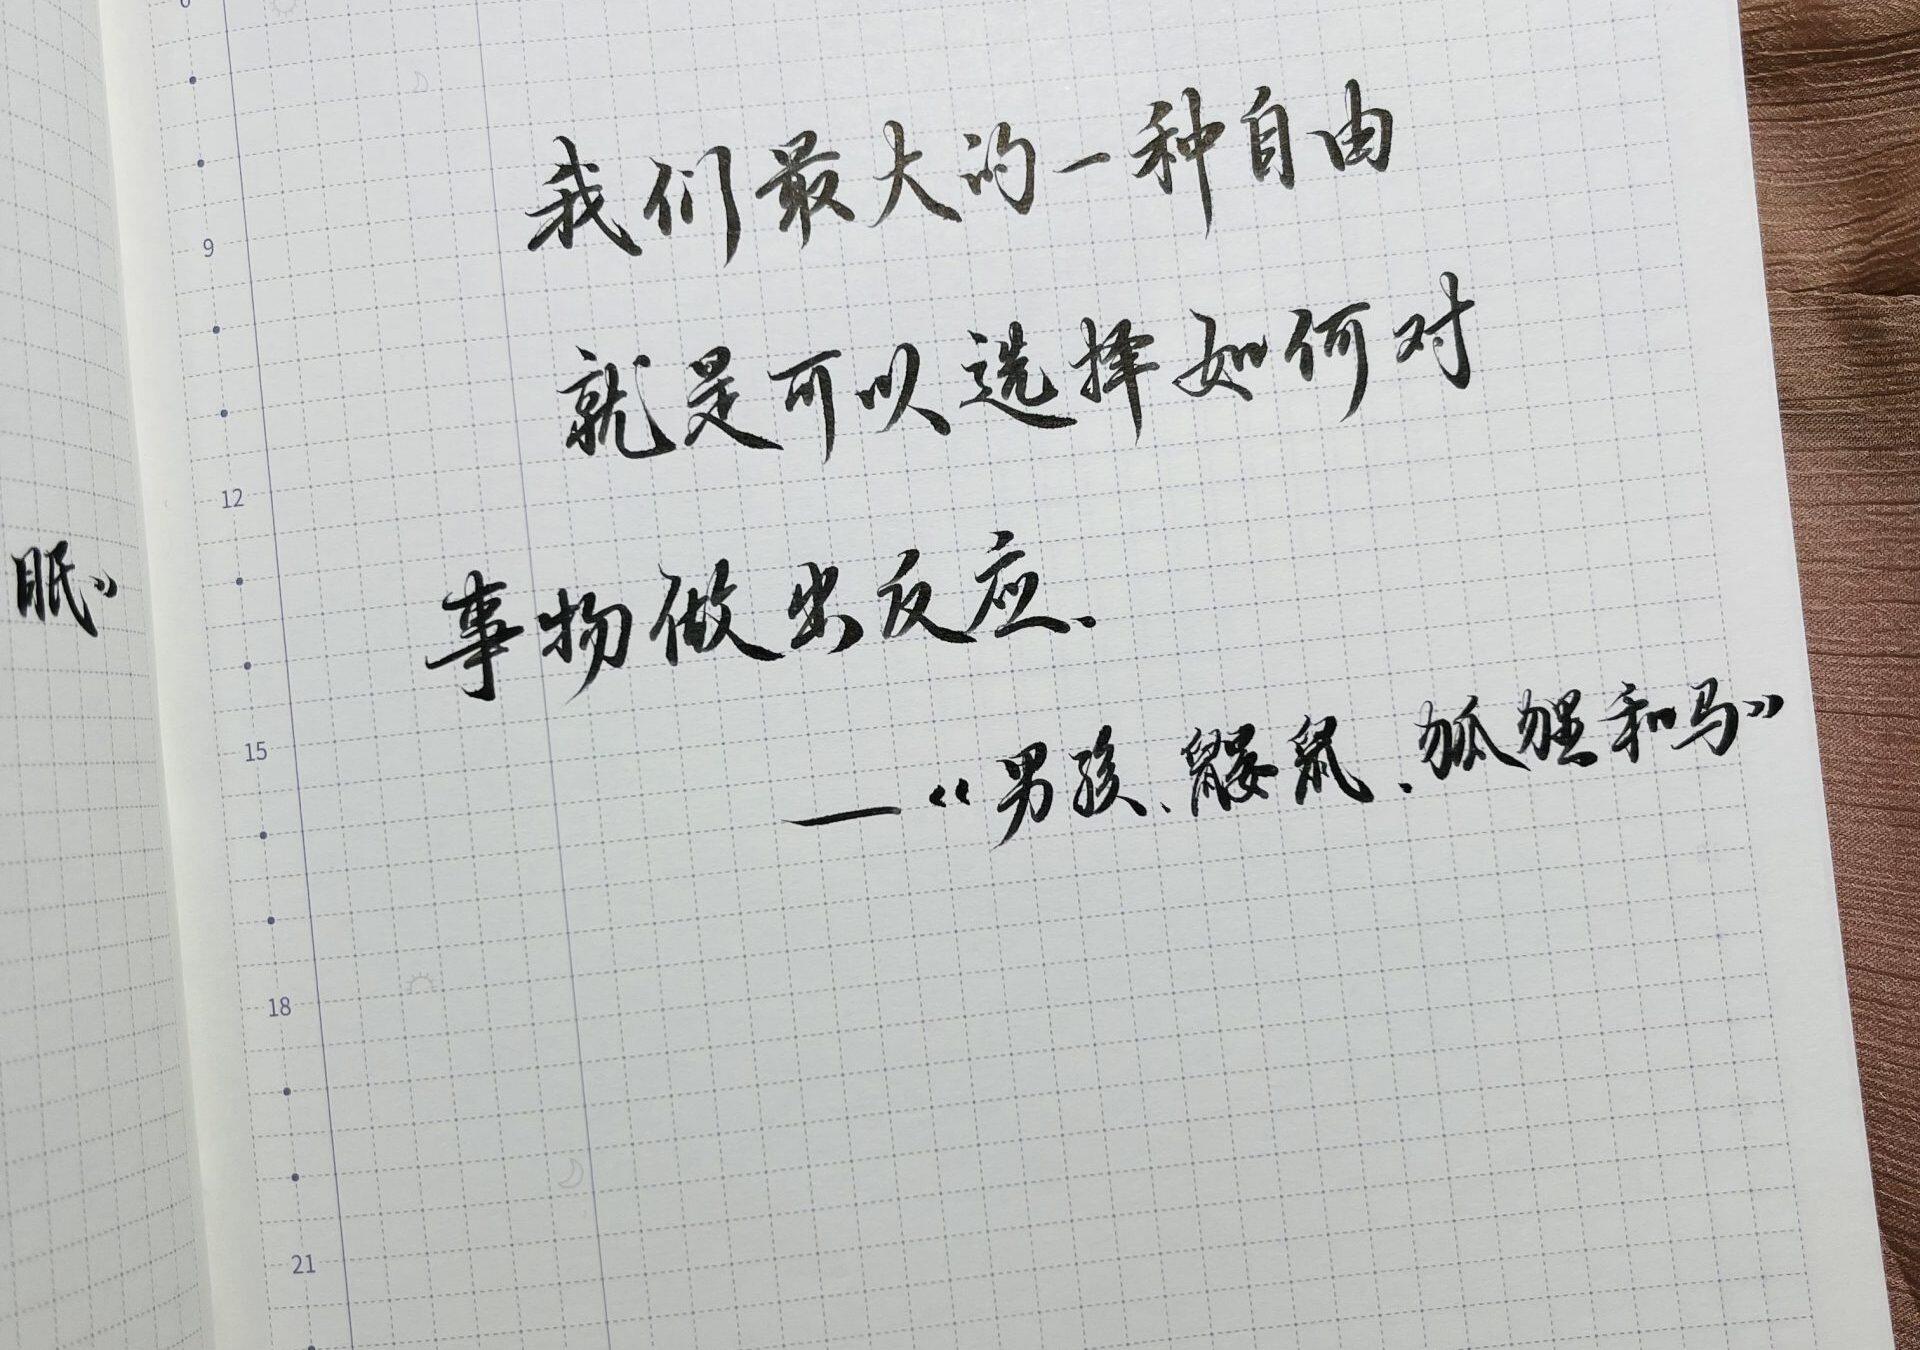 我们最大的一种自由
就是可以选择如何对
事物做出反应.
——《男孩、鼹鼠、狐狸和马》
眠》
9
12
15
18
21